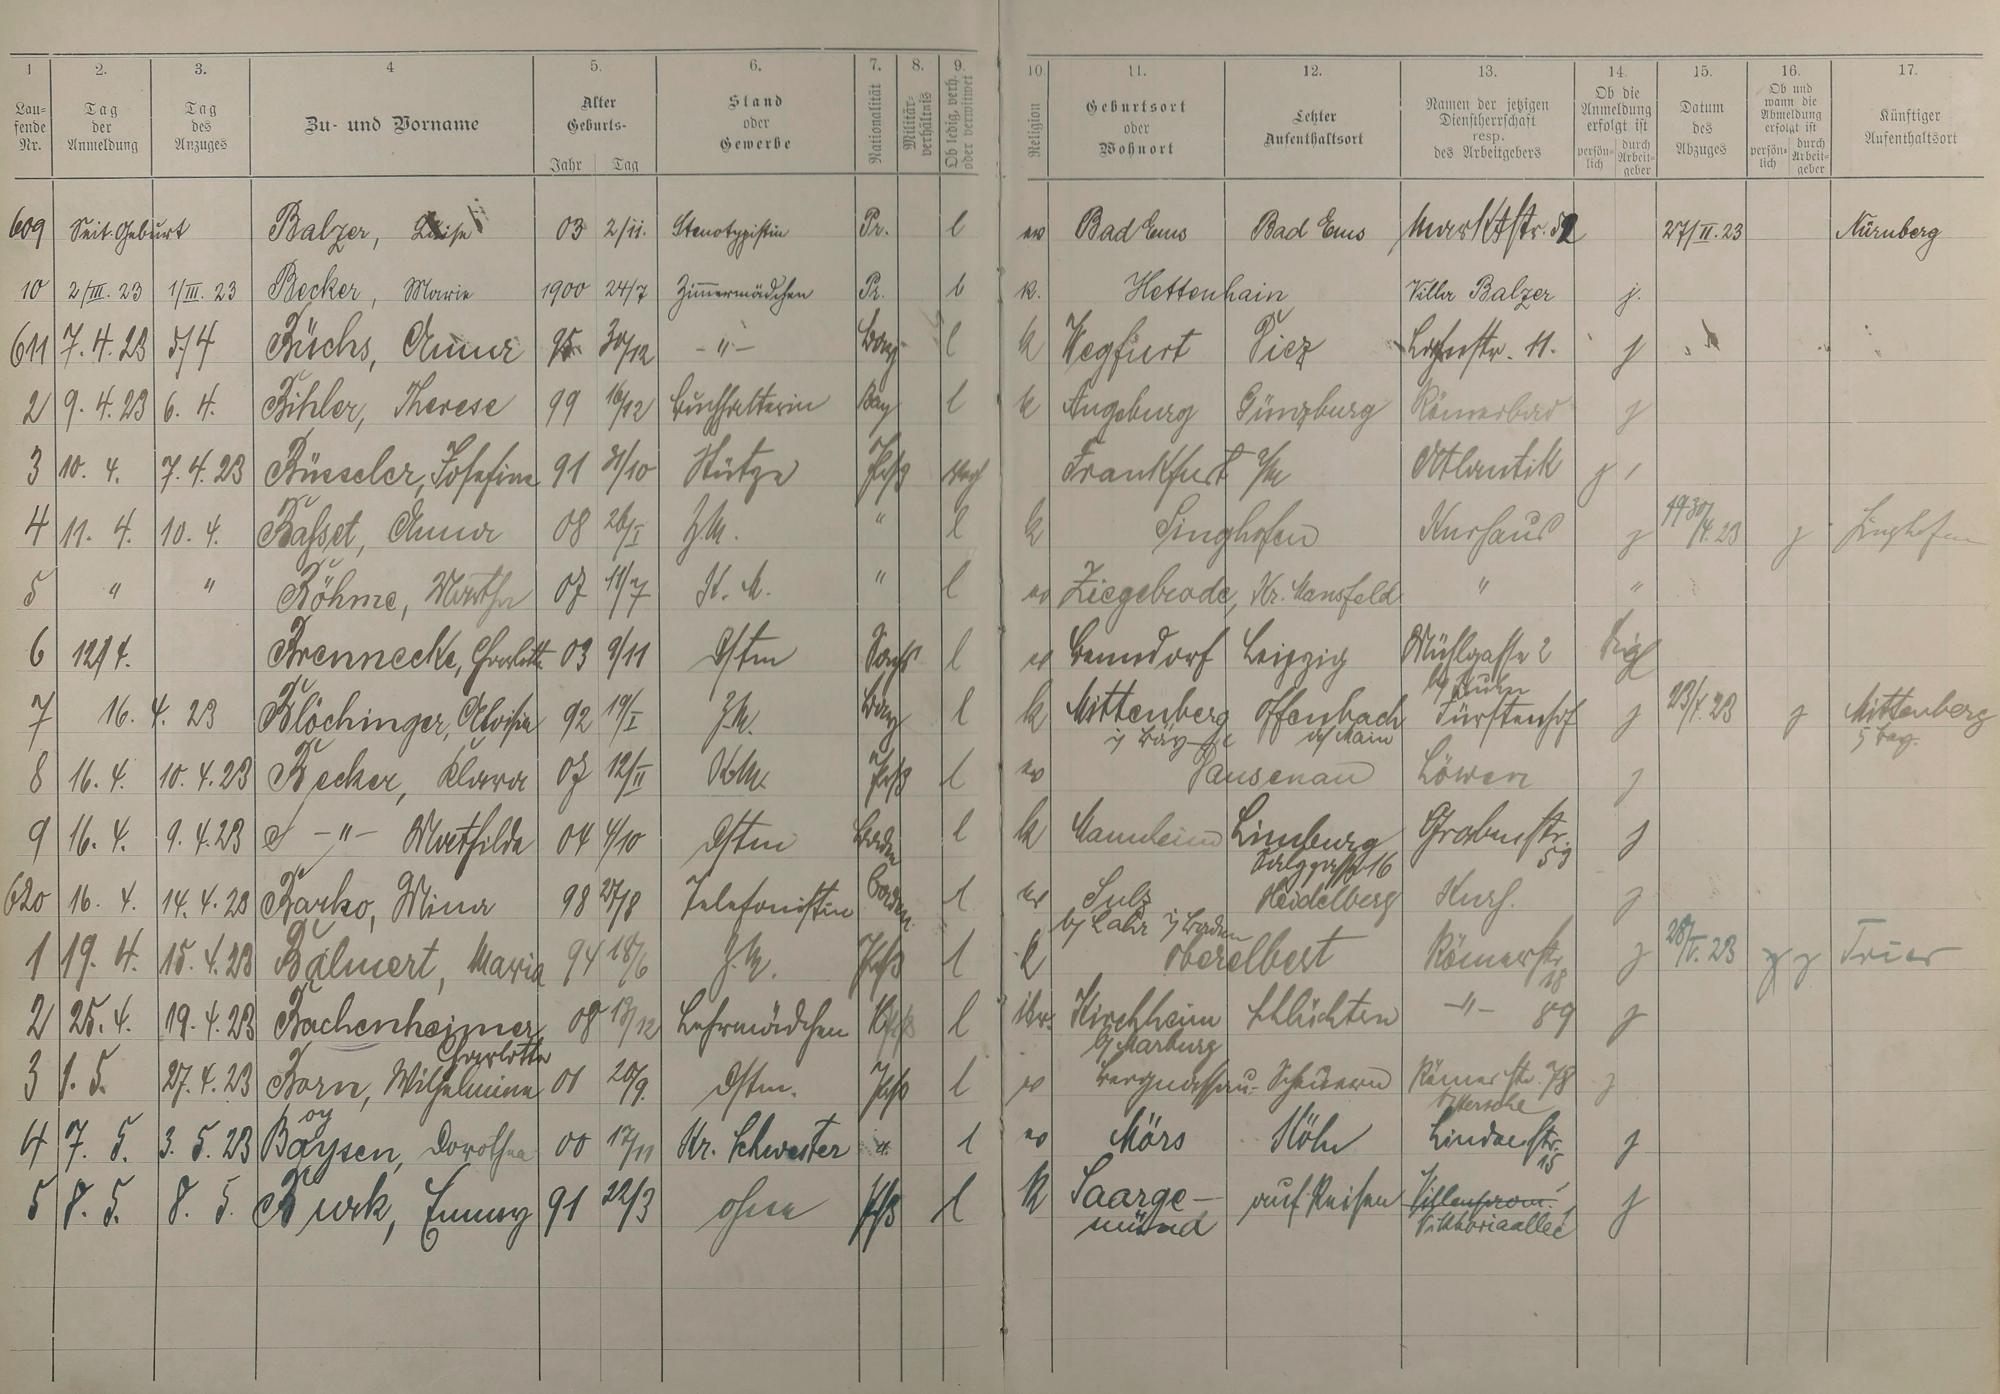 1 2. 3. 4 5. 6. 7. 8. 9. 10. 11. 12. 13. 14. 15. 16. 17.
Lau-
fende
Nr.
Tag
der
Anmeldung
Tag
des
Anzuges
Zu- und Vorname
Alter
Geburts-
Jahr Tag
Stand
oder
Gewerbe
Nationalität
Militär-
verhältnis
Ob ledig, verh.
oder verwitwet
Religion
Geburtsort
oder
Wohnort
Letzter
Aufenthaltsort
Namen der jetzigen
Dienstherrschaft
resp.
des Arbeitgebers
Ob die
Anmeldung
erfolgt ist
persön-
lich
durch
Arbeit-
geber
Datum
des
Abzuges
Ob und
wann die
Abmeldung
erfolgt ist
persön-
lich
durch
Arbeit-
geber
Künftiger
Aufenthaltsort
609 Seit Geburt Balzer, Luise 03 2/11. Stenotypistin Pr. l ev Bad Ems Bad Ems Marktstr. 27/II. 23 Nürnberg
10 2/III. 23 1/III. 23 Becker, Marie 1900 24/7 Zimmermädchen Pr. l k. Hettenhain Villa Balzer j.
611 7. 4. 23 5/4 Büchs, Anna 95 30/12 - " - Bay l k Wegfurt Diez 11. j
2 9. 4. 23 6. 4. Bihler, Therese 99 16/12 Buchhalterin Bay l k Augsburg Günzburg Römerbad j
3 10. 4. 7. 4. 23 Büsseler, Josefine 91 31/10 Stütze Prß Frankfurt a/M Atlantik j
4 11. 4. 10. 4. Basset, Anna 08 26/I Z. M. " l k Singhofen Kurhaus j 30/4. 23 j Singhofen
5 " " Böhme, Martha 07 11/7 K. M. " l ev Ziegelrode, Kr. Mansfeld " "
6 12/4. Brennecke, Charlotte 03 9/11 Sachs l ev Benndorf Leipzig Mühlgasse 2
7 16. 4. 23 Blöchinger, Aloisia 92 19/I Z. M. Bay l k Mittenberg Offenbach Fürstenhof j 23/4. 23 j Mittenberg
i/ Bay a/ Main
8 16. 4. 10. 4. 23 Becker, Klara 07 12/II Prß l ev Dausenau Löwen j
9 16. 4. 9. 4. 23 - " - Mathilde 04 4/10 Baden l k Mannheim Limburg Grabenstr. j
59
16
620 16. 4. 14. 4. 23 Barko, Mina 98 27/8 Telefonistin Baden l ev Sulz Heidelberg Kurh. j
b/ Lahr i/ Baden
1 19. 4. 15. 4. 23 Balmert, Maria 94 18/6 Z. M. Prß l k Oberelbert Römerstr. j 28/V. 23 j Trier
18
2 25. 4. 19. 4. 23 Bachenheimer 08 13/12 Lehrmädchen Prß l isr. Kirchheim Schlüchten - " - 89 j
Charlotte b/ Marburg
3 1. 5. 27. 4. 23 Born, Wilhelmine 01 20/9. Prß l ev Bergnassau-Scheuern Römerstr. 78 j
4 7. 5. 3. 5. 23 Boysen, Dorothea 00 17/11 Kr. Schwester " l ev Mörs Köln Lindenstr. j
15
5 8. 5. 8. 5. Burk, Emmy 91 22/3 ohne Prß l k Saarge- auf Reisen Villenprom. j
münd Viktoriaallee